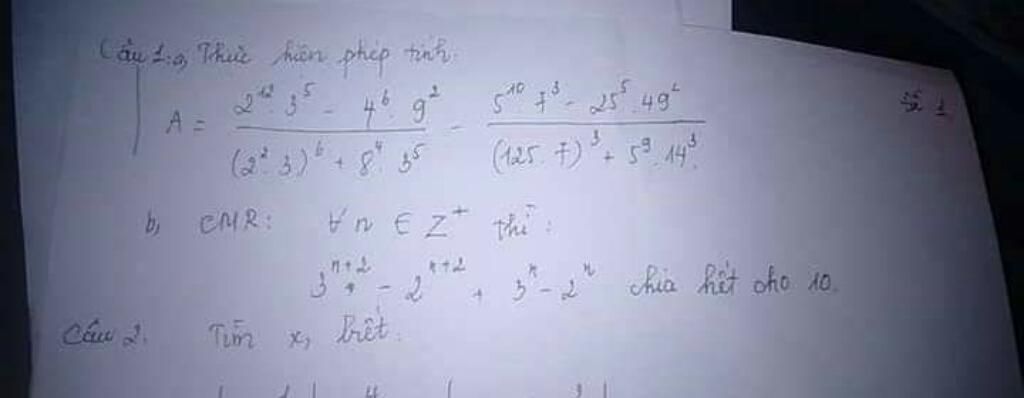 Câu 1: a, Thực hiện phép tính.
A = (2^12 . 3^5 - 4^6 . 9^2) / ((2^2 . 3)^6 + 8^4 . 3^5) - (5^10 . 7^3 - 25^5 . 49^2) / ((125 . 7)^3 + 5^9 . 14^3)
b, CMR: ∀ n ∈ Z^+ thì:
3^(n+2) - 2^(n+2) + 3^n - 2^n chia hết cho 10.
Câu 2. Tìm x, biết: